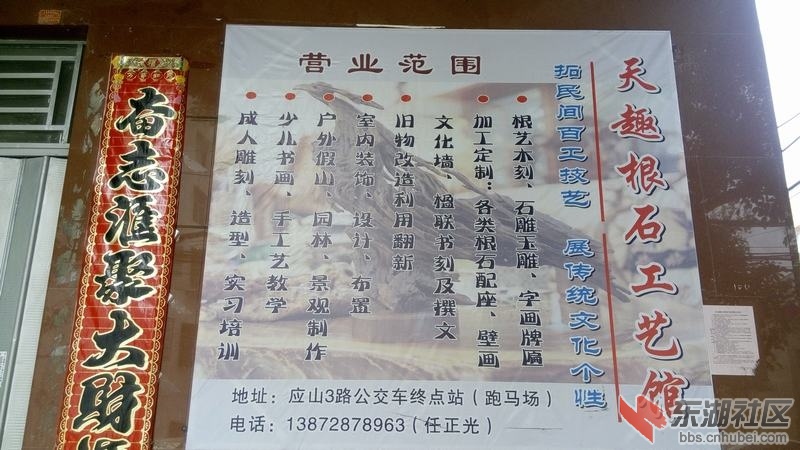 天趣根石工艺馆
拓民间百工技艺 展传统文化个性
营业范围
根艺木刻、石雕玉雕、字画牌匾
加工定制：各类根石配座、壁画
文化墙、楹联书刻及撰文
旧物改造利用翻新
室内装饰、设计、布置
户外假山、园林、景观制作
少儿书画、手工艺教学
成人雕刻、造型、实习培训
地址：应山3路公交车终点站（跑马场）
电话：13872878963（任正光）
志滙聚大財
东湖社区
bbs.cnhubei.com